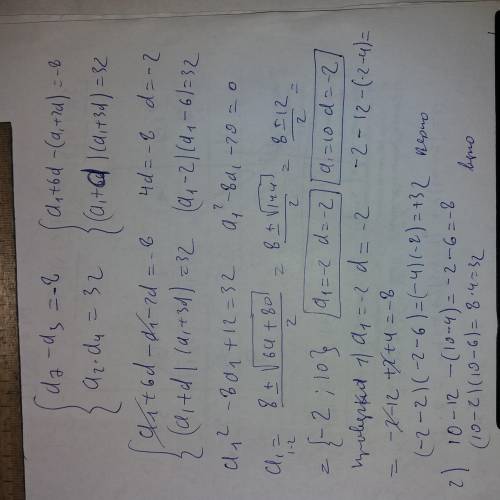 { a₇ - a₃ = -8 { a₁ + 6d - (a₁ + 2d) = -8
{ a₂ · a₄ = 32 { (a₁ + d)(a₁ + 3d) = 32
{ a₁ + 6d - a₁ - 2d = -8 4d = -8 d = -2
{ (a₁ + d)(a₁ + 3d) = 32 (a₁ - 2)(a₁ - 6) = 32
a₁² - 8a₁ + 12 = 32 a₁² - 8a₁ - 20 = 0
a₁₋₂ = (8 ± √(64 + 80))/2 = (8 ± √144)/2 = (8 ± 12)/2 =
= {-2 ; 10} a₁ = -2 d = -2 a₁ = 10 d = -2
проверка 1) a₁ = -2 d = -2 -2 - 12 - (-2 - 4) =
= -2 - 12 + 2 + 4 = -8
(-2 - 2)(-2 - 6) = (-4)(-8) = +32 верно
2) 10 - 12 - (10 - 4) = -2 - 6 = -8
(10 - 2)(10 - 6) = 8 · 4 = 32 верно